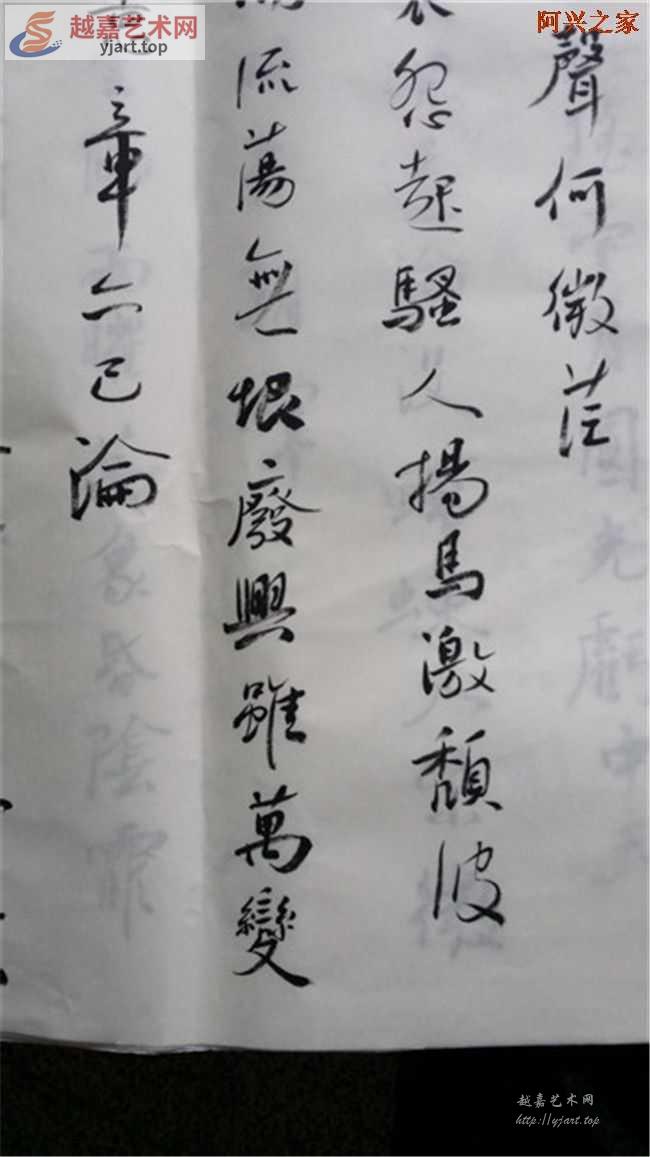 越嘉艺术网
yjart.top
阿兴之家
聲何微茫
怨起騷人揚馬激頹波
流蕩無垠廢興雖萬變
章亦已淪
越嘉艺术网
http://yjart.top